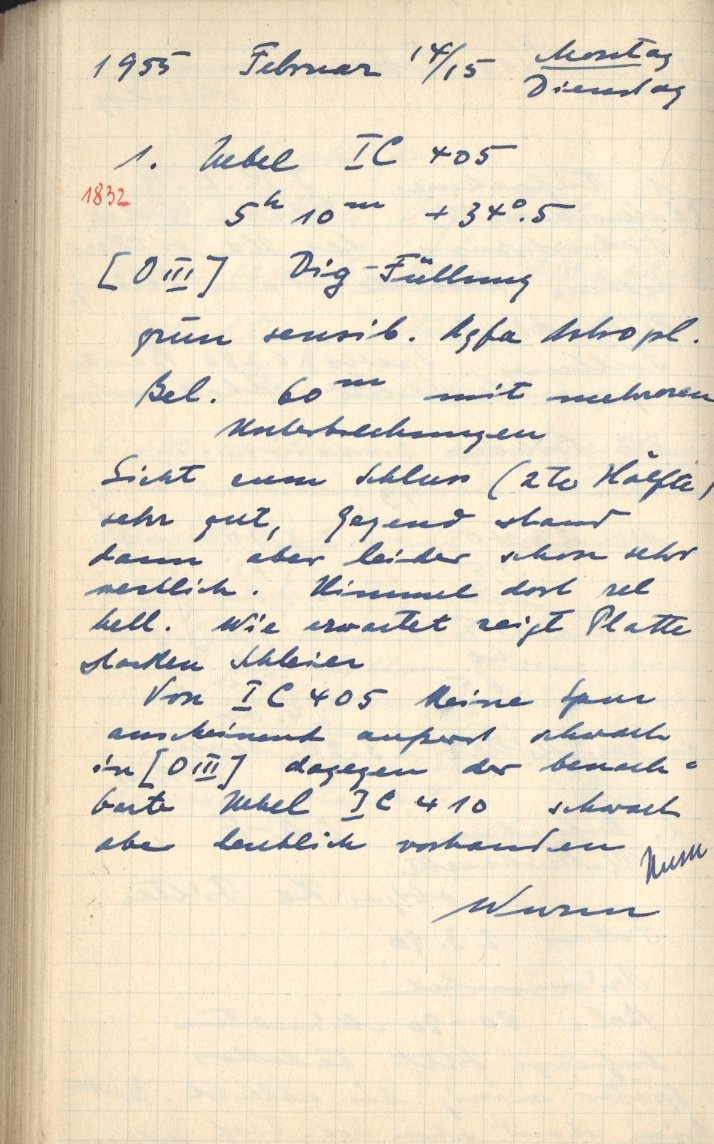 1955 Februar 14/15 Montag
Dienstag
1. Nebel IC 405
1832
5h 10m +34°.5
[O III] Dig-Füllung
grün sensib. Agfa Astropl.
Bel. 60m mit mehreren
Unterbrechungen
Sicht zum Schluss (2te Hälfte)
sehr gut, Gegend stand
dann aber leider schon sehr
westlich. Himmel dort rel
hell. Wie erwartet zeigt Platte
starken Schleier
Von IC 405 keine Spur
anscheinend äusserst schwach
in [O III] dagegen der benach-
barte Nebel IC 410 schwach
aber deutlich vorhanden
Wurm